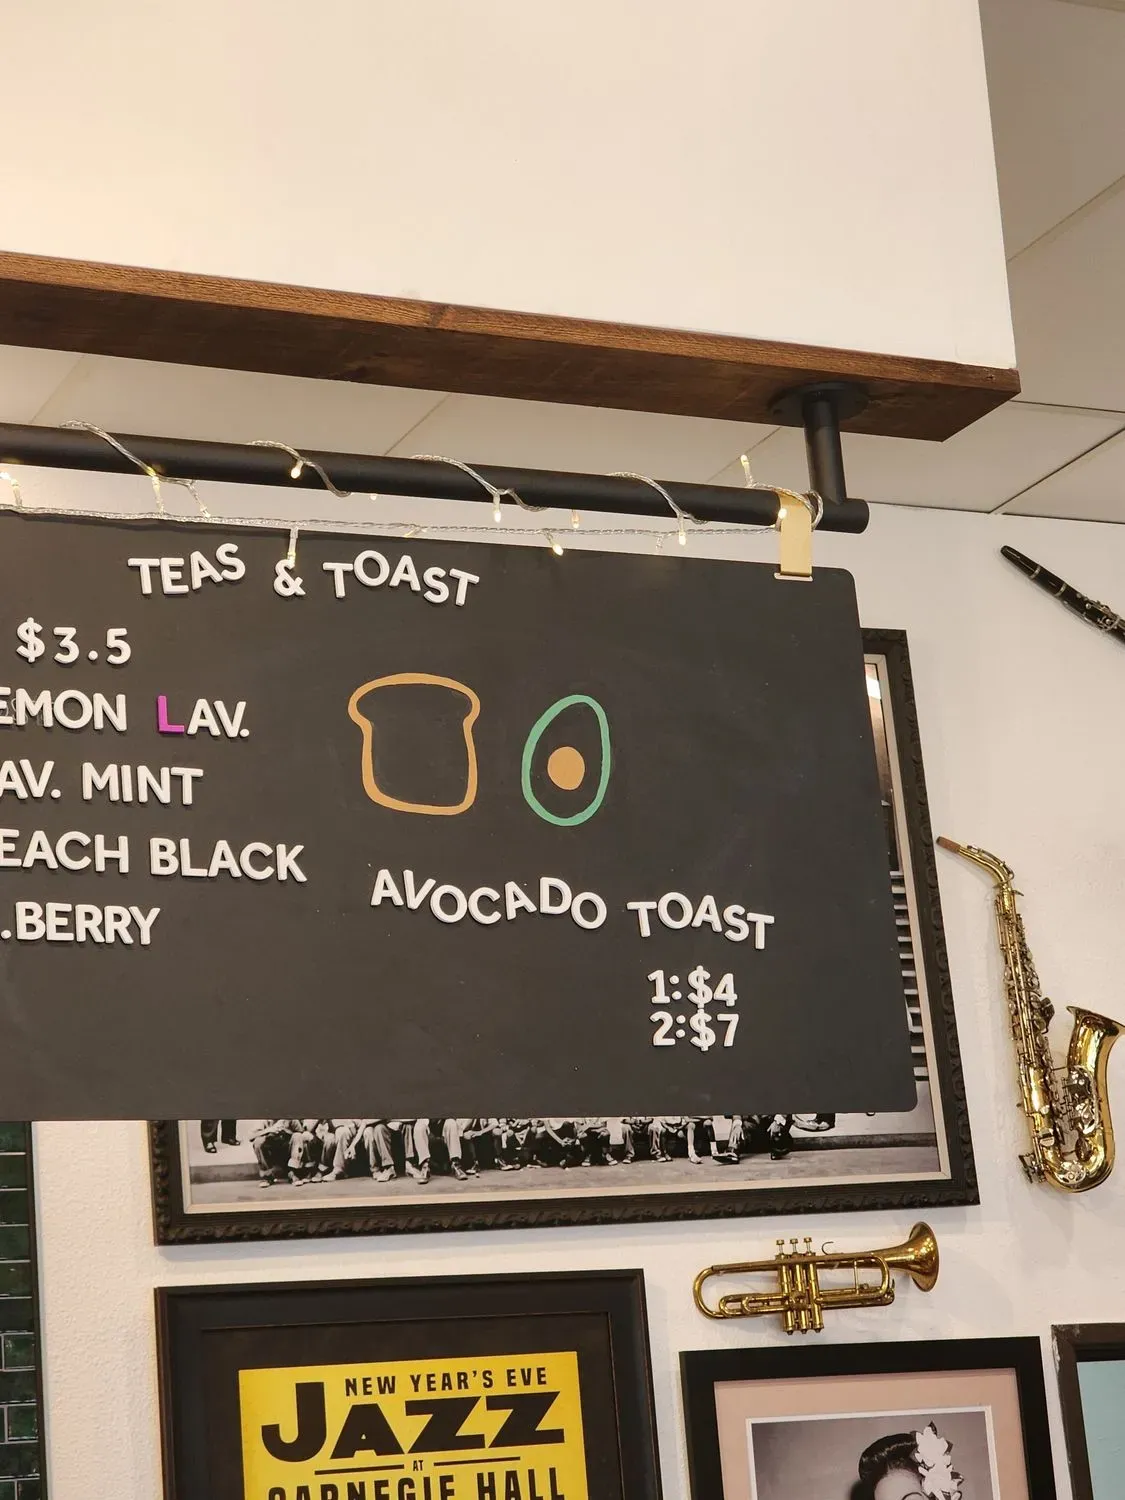 TEAS & TOAST
$3.5
EMON LAV.
AV. MINT
EACH BLACK
.BERRY
AVOCADO TOAST
1:$4
2:$7
NEW YEAR'S EVE
JAZZ
AT
CARNEGIE HALL